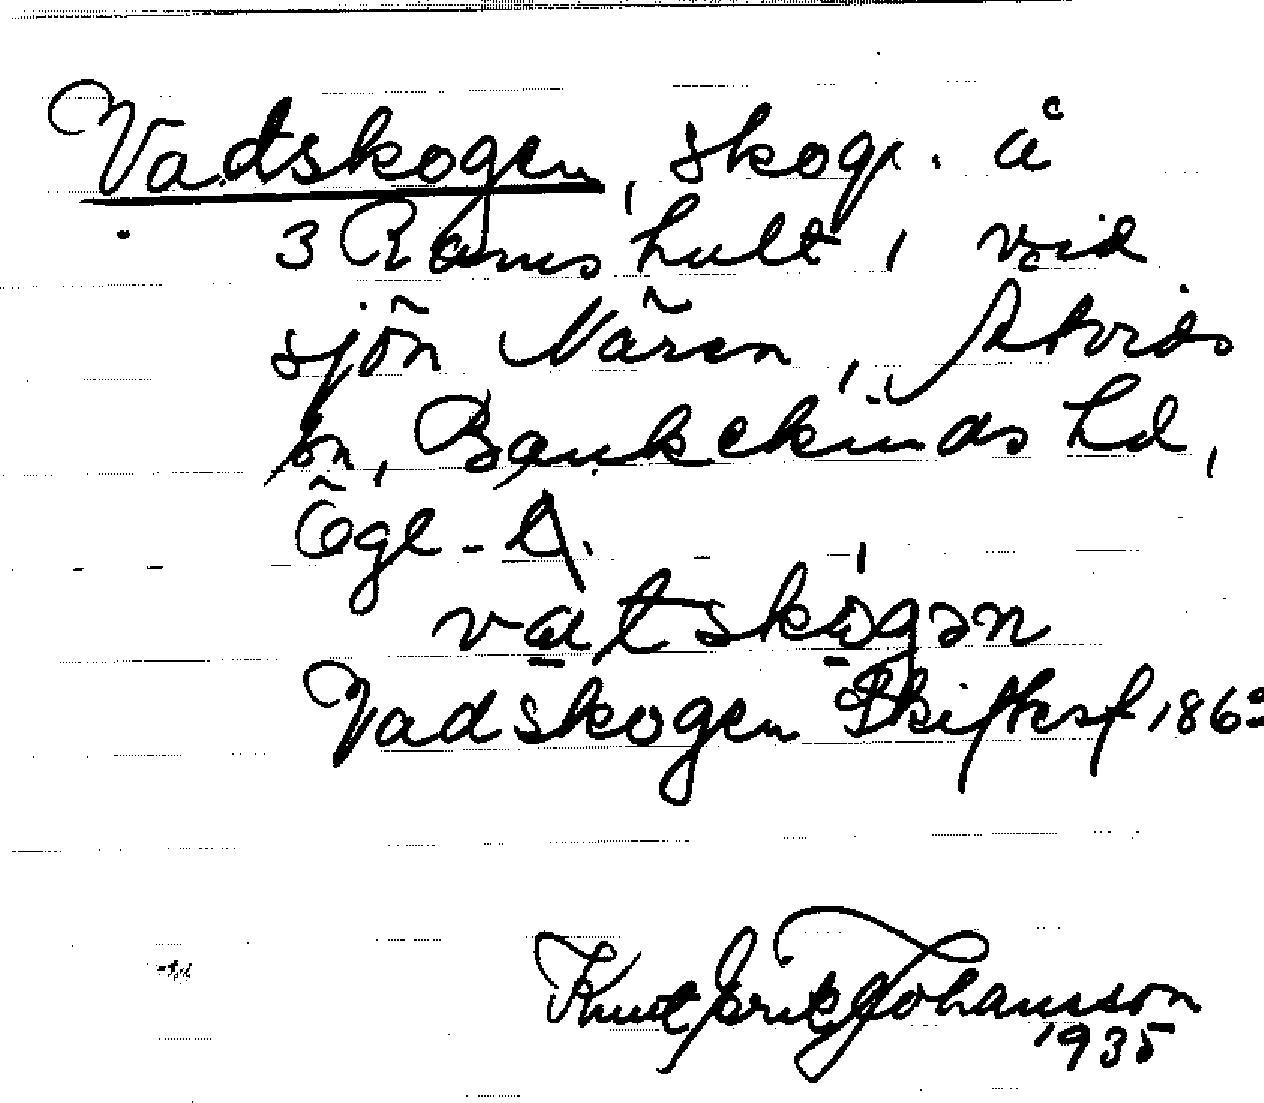 Vadskogen, skog. å
3 Ramshult, vid
sjön Nären, Åtvids
sn, Bankekinds hd,
Ögl. 
vatskogən
Vadskogen Skifteskf 186
Knut Erik Johansson
1935